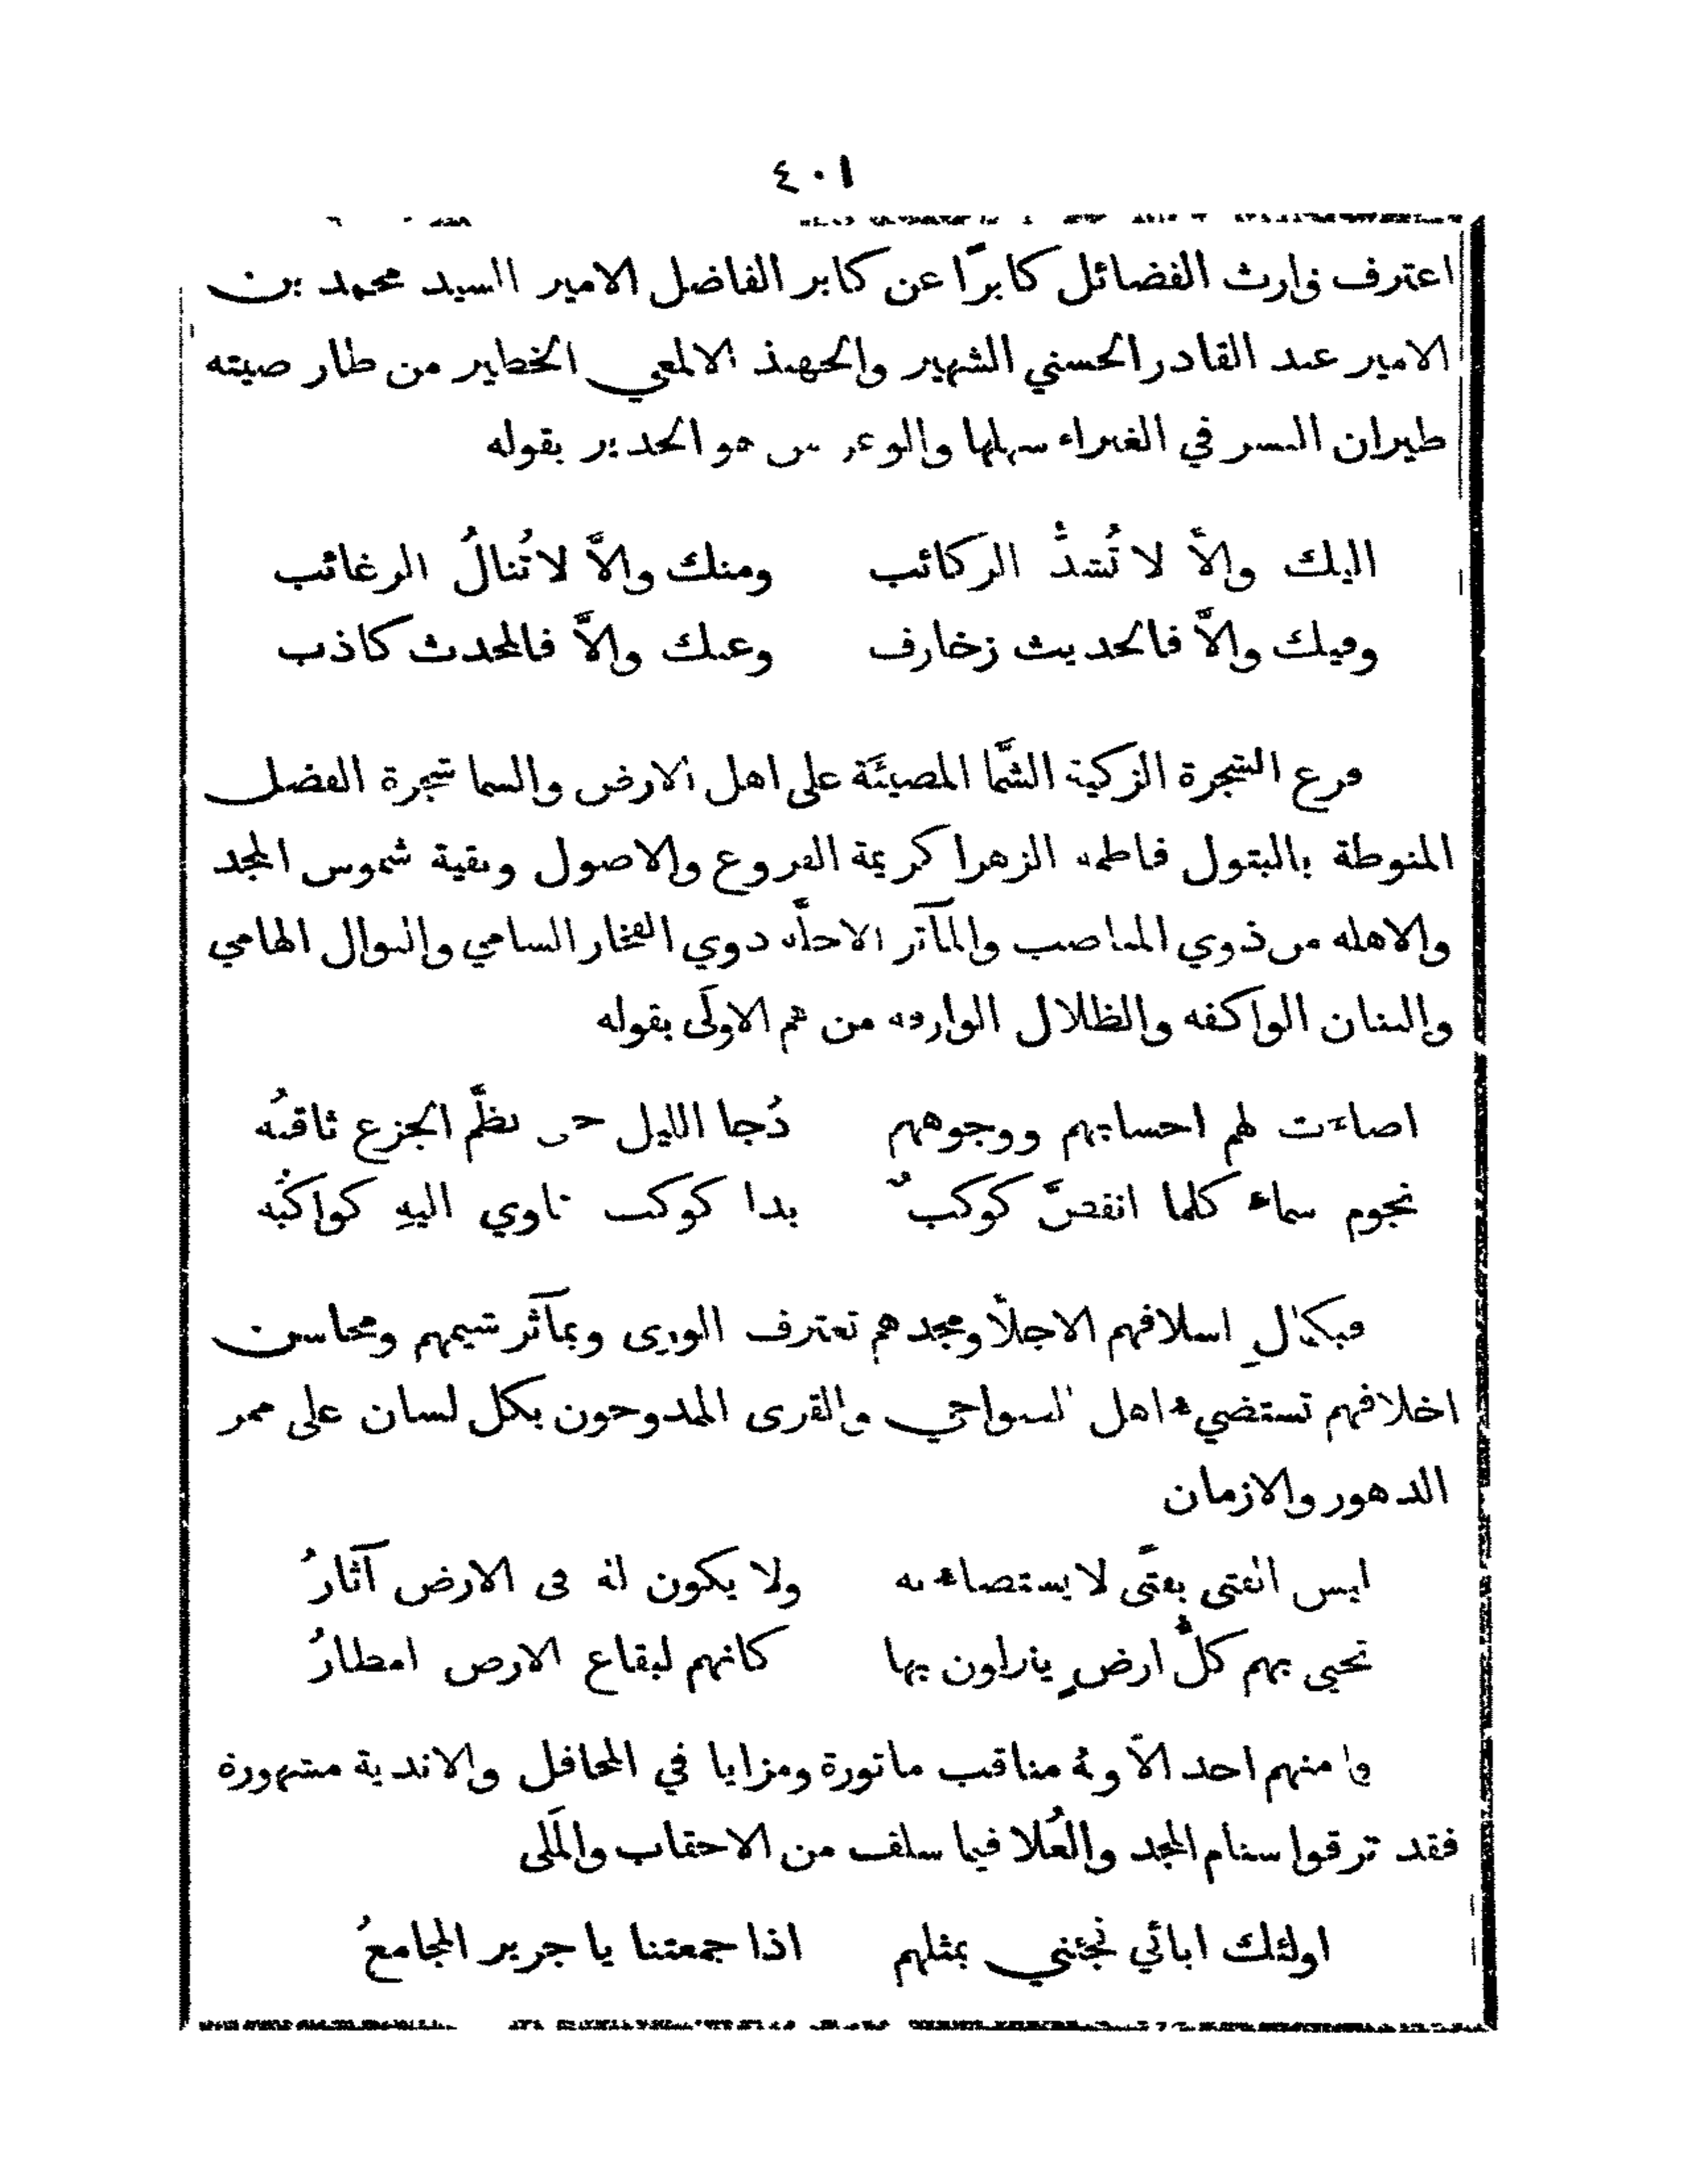 ٤٠١
اعترف وارث الفضائل كابرًا عن كابر الفاضل الامير السيد محمد بن
الامير عبد القادر الحسني الشهير والجهبذ الالمعي الخطير من طار صيته
طيران النسر في الغبراء سهلها والوعر من هو الجدير بقوله
اليك والاَّ لا تُشدُّ الركائب ومنك والاَّ لا تُنالُ الرغائب
وفيك والاَّ فالحديث زخارف وعنك والاَّ فالمحدث كاذب
فرع الشجرة الزكية الشمَّا المضيئَة على اهل الارض والسما شجرة الفضل
المنوطة بالبتول فاطمه الزهرا كريمة الفروع والاصول وبقية شموس المجد
والاهله من ذوي المناصب والمآثر الاجلَّه ذوي الفخار السامي والنوال الهامي
والبنان الواكفه والظلال الوارفه من هم الاولَى بقوله
اضاءَت لهم احسابهم ووجوههم دُجا الليل حتى نظَّم الجزع ثاقبُه
نجوم سماء كلما انقضَّ كوكبٌ بدا كوكب تاوي اليهِ كواكبُه
فبكمالِ اسلافهم الاجلاَّ ومجدهم تعترف الورى وبمآثر شيمهم ومحاسن
اخلافهم تستضيء اهل النواحي والقرى الممدوحون بكل لسان على ممر
الدهور والازمان
ليس الفتى بفتًى لا يستضاء به ولا يكون له في الارض آثارُ
تحيى بهم كلُّ ارضٍ ينزلون بها كانهم لبقاع الارض امطارُ
وما منهم احد الاَّ وله مناقب ماثورة ومزايا في المحافل والاندية مشهورة
فقد ترقوا سنام المجد والعُلا فيما سلف من الاحقاب والمَلَى
اولئك ابائي فجئني بمثلهم اذا جمعتنا يا جرير المجامعُ